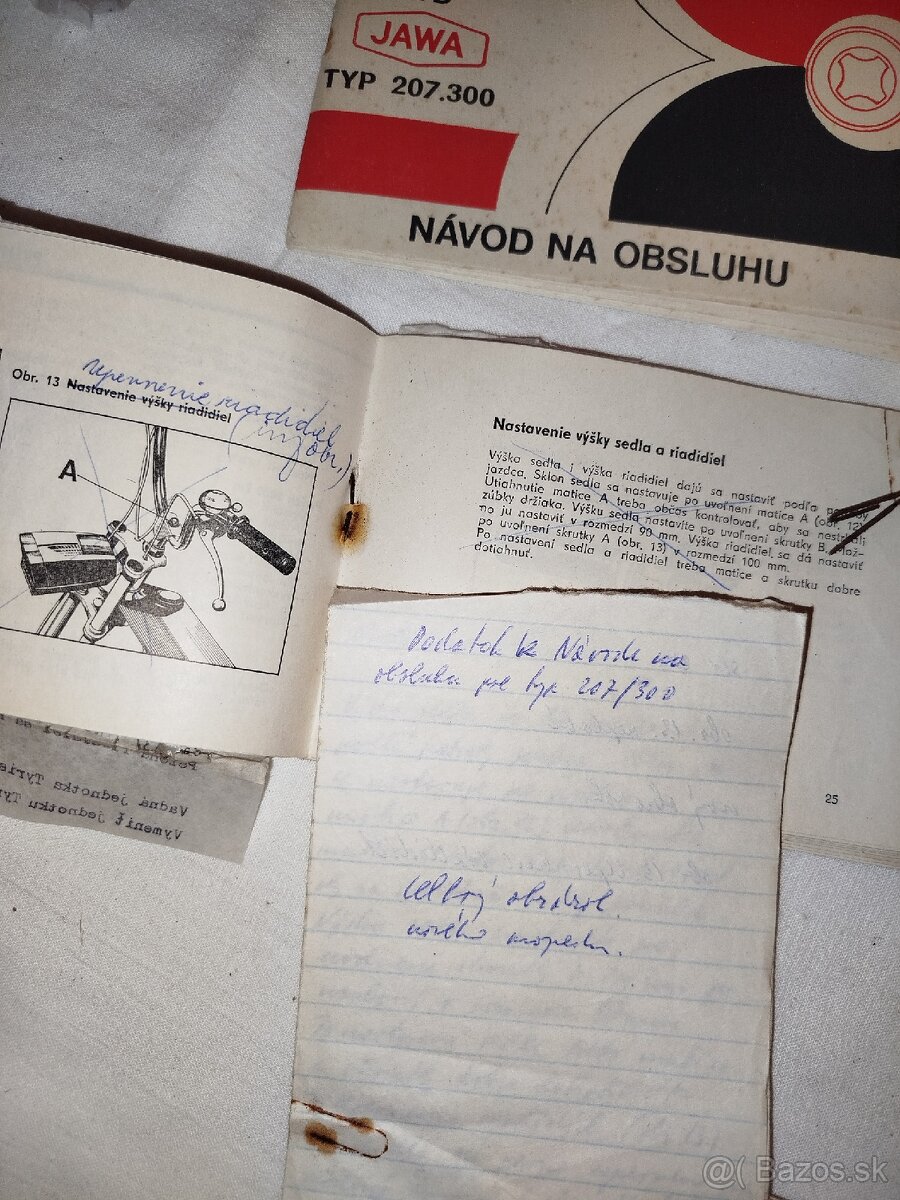 JAWA
TYP 207.300
NÁVOD NA OBSLUHU
upevnenie riadidiel
(iný obr.)
Obr. 13 Nastavenie výšky riadidiel
A
Nastavenie výšky sedla a riadidiel
Výška sedla i výška riadidiel dajú sa nastaviť podľa
jazdca. Sklon sedla sa nastavuje po uvoľnení matice A (obr. 12)
Utiahnutie matice A treba občas kontrolovať, aby sa nestrhali
zúbky držiaka. Výšku sedla nastavíte po uvoľnení skrutky B.
no ju nastaviť v rozmedzí 90 mm. Výška riadidiel sa dá nastaviť
po uvoľnení skrutky A (obr. 13) v rozmedzí 100 mm.
Po nastavení sedla a riadidiel treba matice a skrutku dobre
dotiahnuť.
25
Dodatok k Návodu na
obsluhu pre typ 207/300
celkový obrázok
nového mopedu.
Vadná jednotka
Vymeniť jednotku
@( Bazos.sk